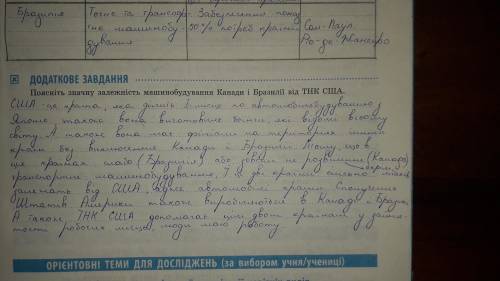 Бразилія Точне та трансп. Забезпечення
не машинобу- 50% потреб країни Сан-Паул
дування Ріо-де-Жанейро
ДОДАТКОВЕ ЗАВДАННЯ
Поясніть значну залежність машинобудування Канади і Бразилії від ТНК США.
США - це країна, яка ділить перше по автомобілебудуванню з
Японію, також вона виготовляє які відомі всьому
світу. А також вона має філіали на територіях інших
країн без виключення Канади і Бразилії. Тому, що в
цих країнах слабо (Бразилія) або зовсім не розвинуте (Канада)
транспортне машинобудування. І ці дві країни сильно
залежать від США адже автомобілі країни Сполучених
Штатів Америки також виробляються в Канаді і Бразилії.
А також, ТНК США допомагає цим двом країнам у зайня-
тості робочих місць, люди мають роботу
ОРІЄНТОВНІ ТЕМИ ДЛЯ ДОСЛІДЖЕНЬ (за вибором учня/учениці)